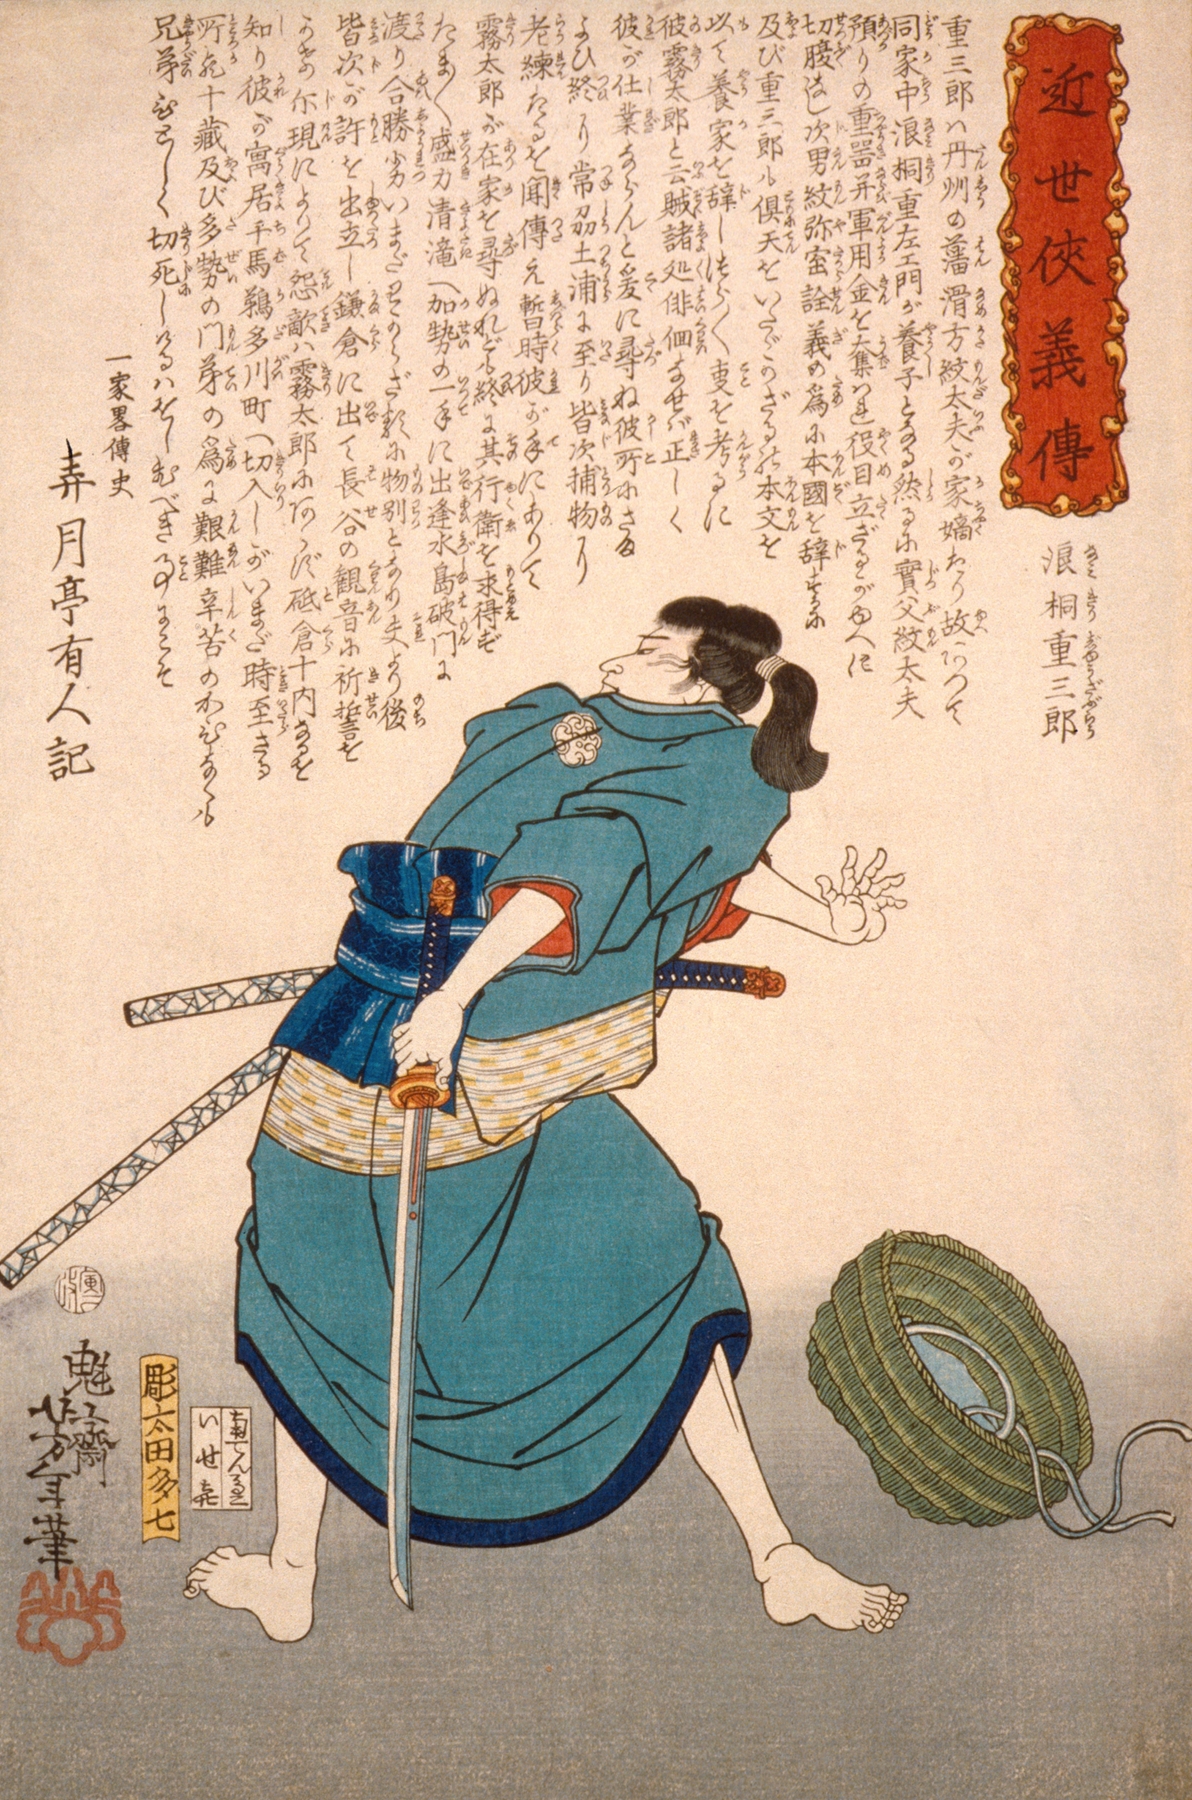 近世侠義傳
浪桐重三郎
重三郎ハ丹州の藩滑方紋太夫が家嫡たり故あつて
同家中浪桐重左エ門が養子となる然るに實父紋太夫
預りの重器并軍用金を奪はれ役目立ざるがゆへに
切腹なし次男紋弥密詮義の爲に本國を辞するに
及び重三郎も倶天をいたゞかざるの本文を
以て養家を辞しつらつら叓を考るに
彼霧太郎と云賊諸処俳徊なせば正しく
彼が仕業ならんと爰に尋ね彼所にさま
よひ終に常刕土浦に至り皆次捕物に
老練たるを聞傳え暫時彼が手にありて
霧太郎が在家を尋ぬれども終に其行衛を求得ず
たまたま盛力清滝へ加勢の一手に出逢水島破門に
渡り合勝劣いまだわからざるに物別となり夫より後
皆次が許を出立し鎌倉に出て長谷の観音に祈誓を
現によりて怨敵ハ霧太郎にあらず砥倉十内なるを
知り彼が寓居千馬鵜多川町へ切入しがいまだ時至らざる
所死十藏及び多勢の門弟の爲に艱難辛苦のかひなくも
兄弟ひとしく切死しけるハをしむべき事にこそ
一家畧傳史
弄月亭有人記
魁齋芳年筆
彫太田多七
いせ喜